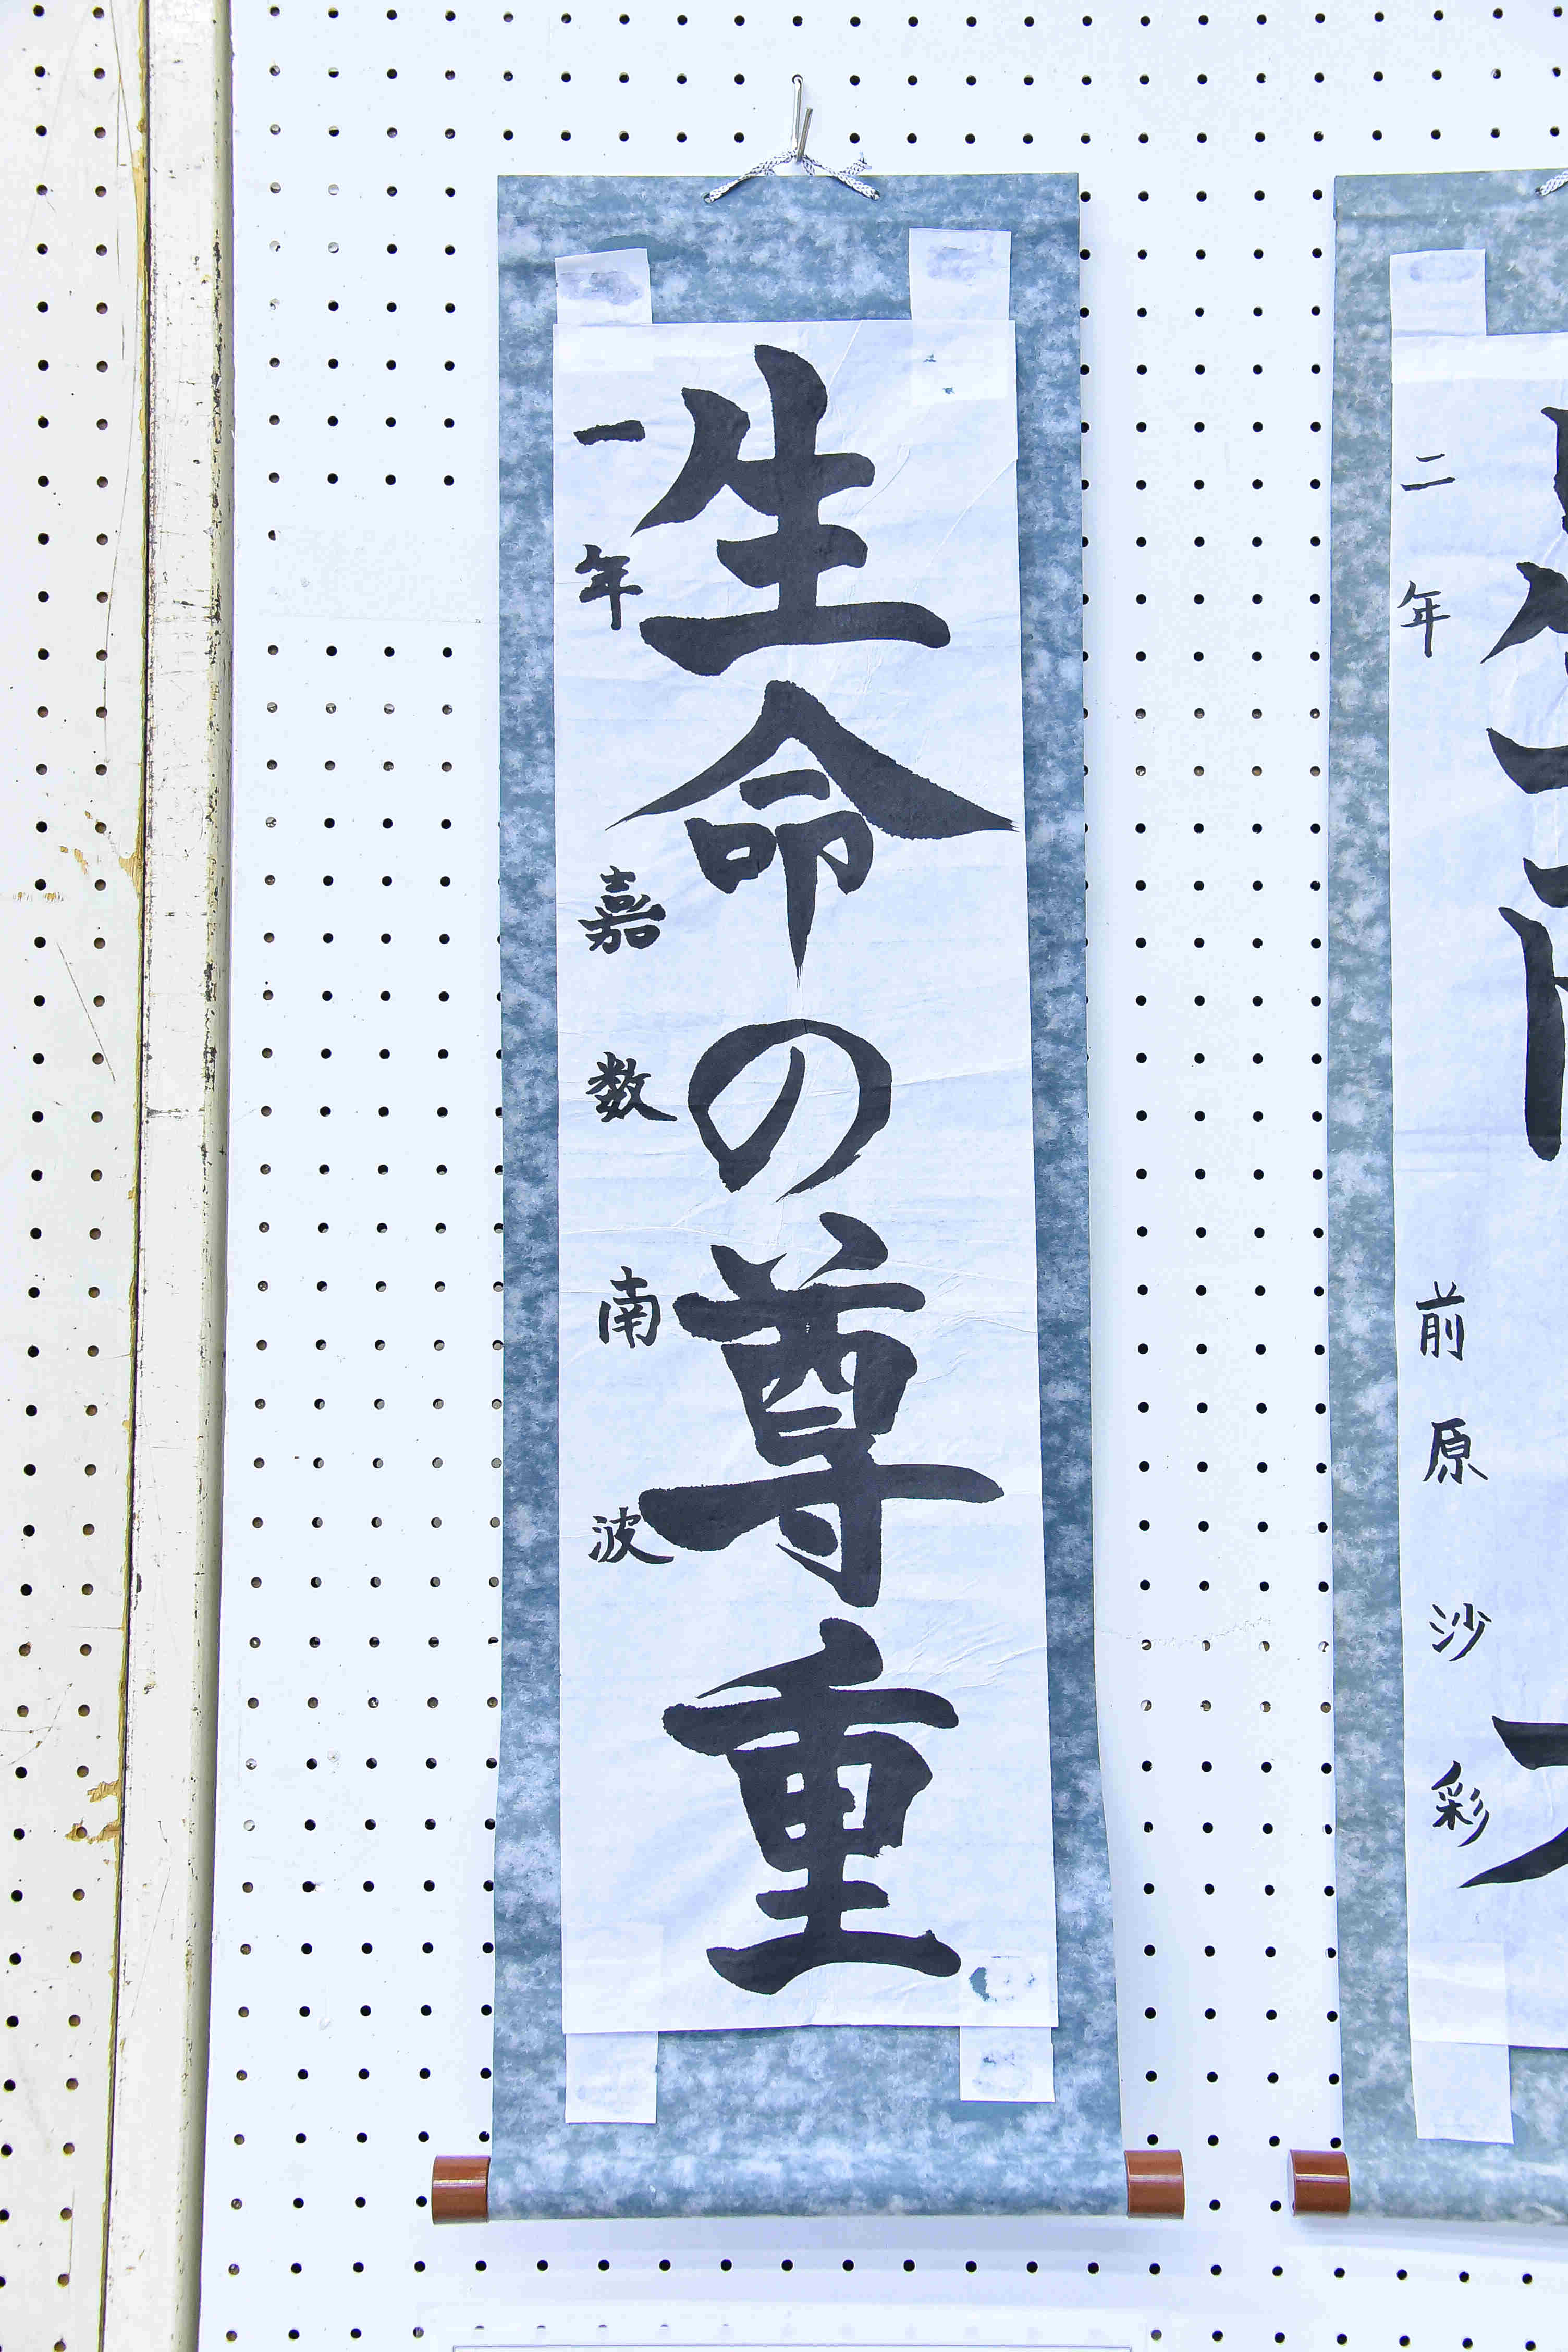 生命の尊重
一年 嘉数南波
二年 前原沙彩